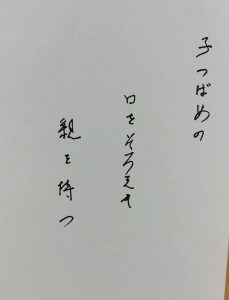 子つばめの
口をそろえて
親を待つ